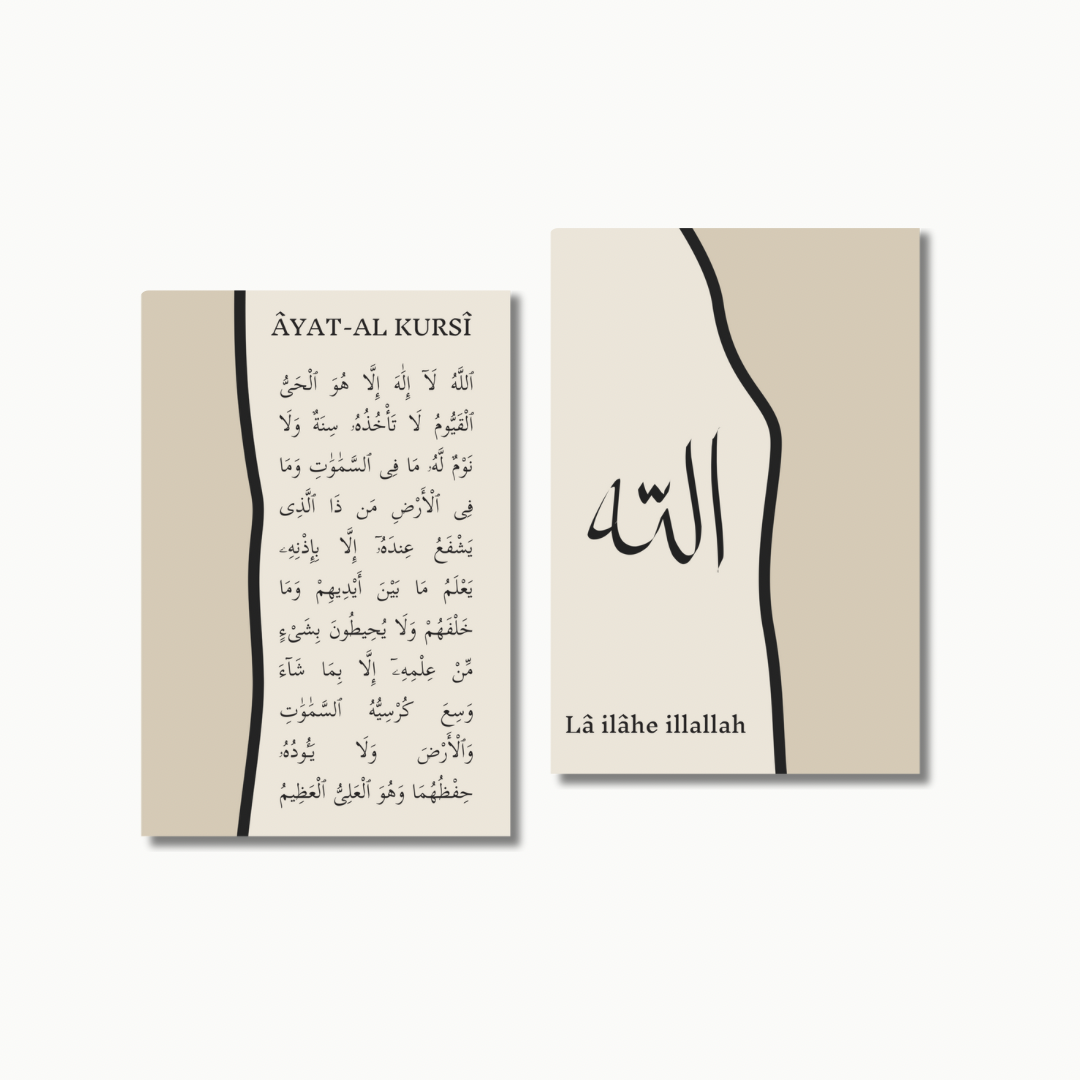 ÂYAT-AL KURSÎ
ٱللَّهُ لَآ إِلَٰهَ إِلَّا هُوَ ٱلْحَىُّ
ٱلْقَيُّومُ لَا تَأْخُذُهُۥ سِنَةٌ وَلَا
نَوْمٌ لَّهُۥ مَا فِى ٱلسَّمَٰوَٰتِ وَمَا
فِى ٱلْأَرْضِ مَن ذَا ٱلَّذِى
يَشْفَعُ عِندَهُۥٓ إِلَّا بِإِذْنِهِۦ
يَعْلَمُ مَا بَيْنَ أَيْدِيهِمْ وَمَا
خَلْفَهُمْ وَلَا يُحِيطُونَ بِشَىْءٍ
مِّنْ عِلْمِهِۦٓ إِلَّا بِمَا شَآءَ
وَسِعَ كُرْسِيُّهُ ٱلسَّمَٰوَٰتِ
وَٱلْأَرْضَ وَلَا يَـُٔودُهُۥ
حِفْظُهُمَا وَهُوَ ٱلْعَلِىُّ ٱلْعَظِيمُ
الته
Lâ ilâhe illallah